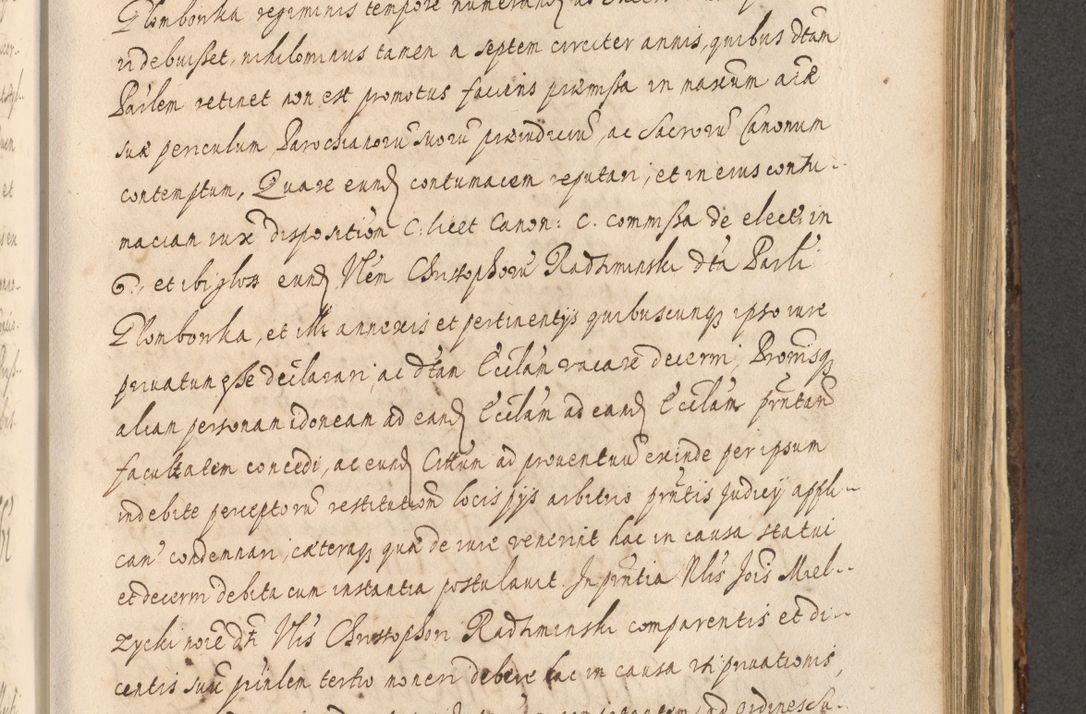 Głomborska regiminis tempore
ri debuisset, nihilominus tamen a septem circiter annis, quibus dtam
Parlem retinet non est promotus faciens præmissa in maxum aiæ
suæ periculum, Parochianorū suorū præiudiciū, ac Sacrorū Canonum
contemptum, Quare eund contumacem reputari, et in eius contu-
maciam iuxe dispositiōn C. licet Canon: C. commissa de elect: in
6.. et ibi gloss eund Nlem Christophorū Radziminski dta Parli
Głomborska, et illi annexis et pertinentijs quibuscunq ipso iure
priuatum esse declarari, ac dtam Eccłam vacare decerni, Promisq
aliam personam idoneam ad eand Eccłam ad eand Eccłam pntand
facultatem concedi, ac eund Cittum ad prouentuū exinde per ipsum
indebite perceptorū restitutionē locis pijs arbitrio pntis Judicij appli-
can condemnari, cæteraq quæ de iure venerint hac in causa statui
et decerni debita cum instantia postulauit. In pntia Nlis Jois Miel-
zycki noie dti Nlis Christophori Radziminski comparentis et di-
centis suū prinlem tertio moneri debere hac in causa rti priuationis,
ad ordines Sa-